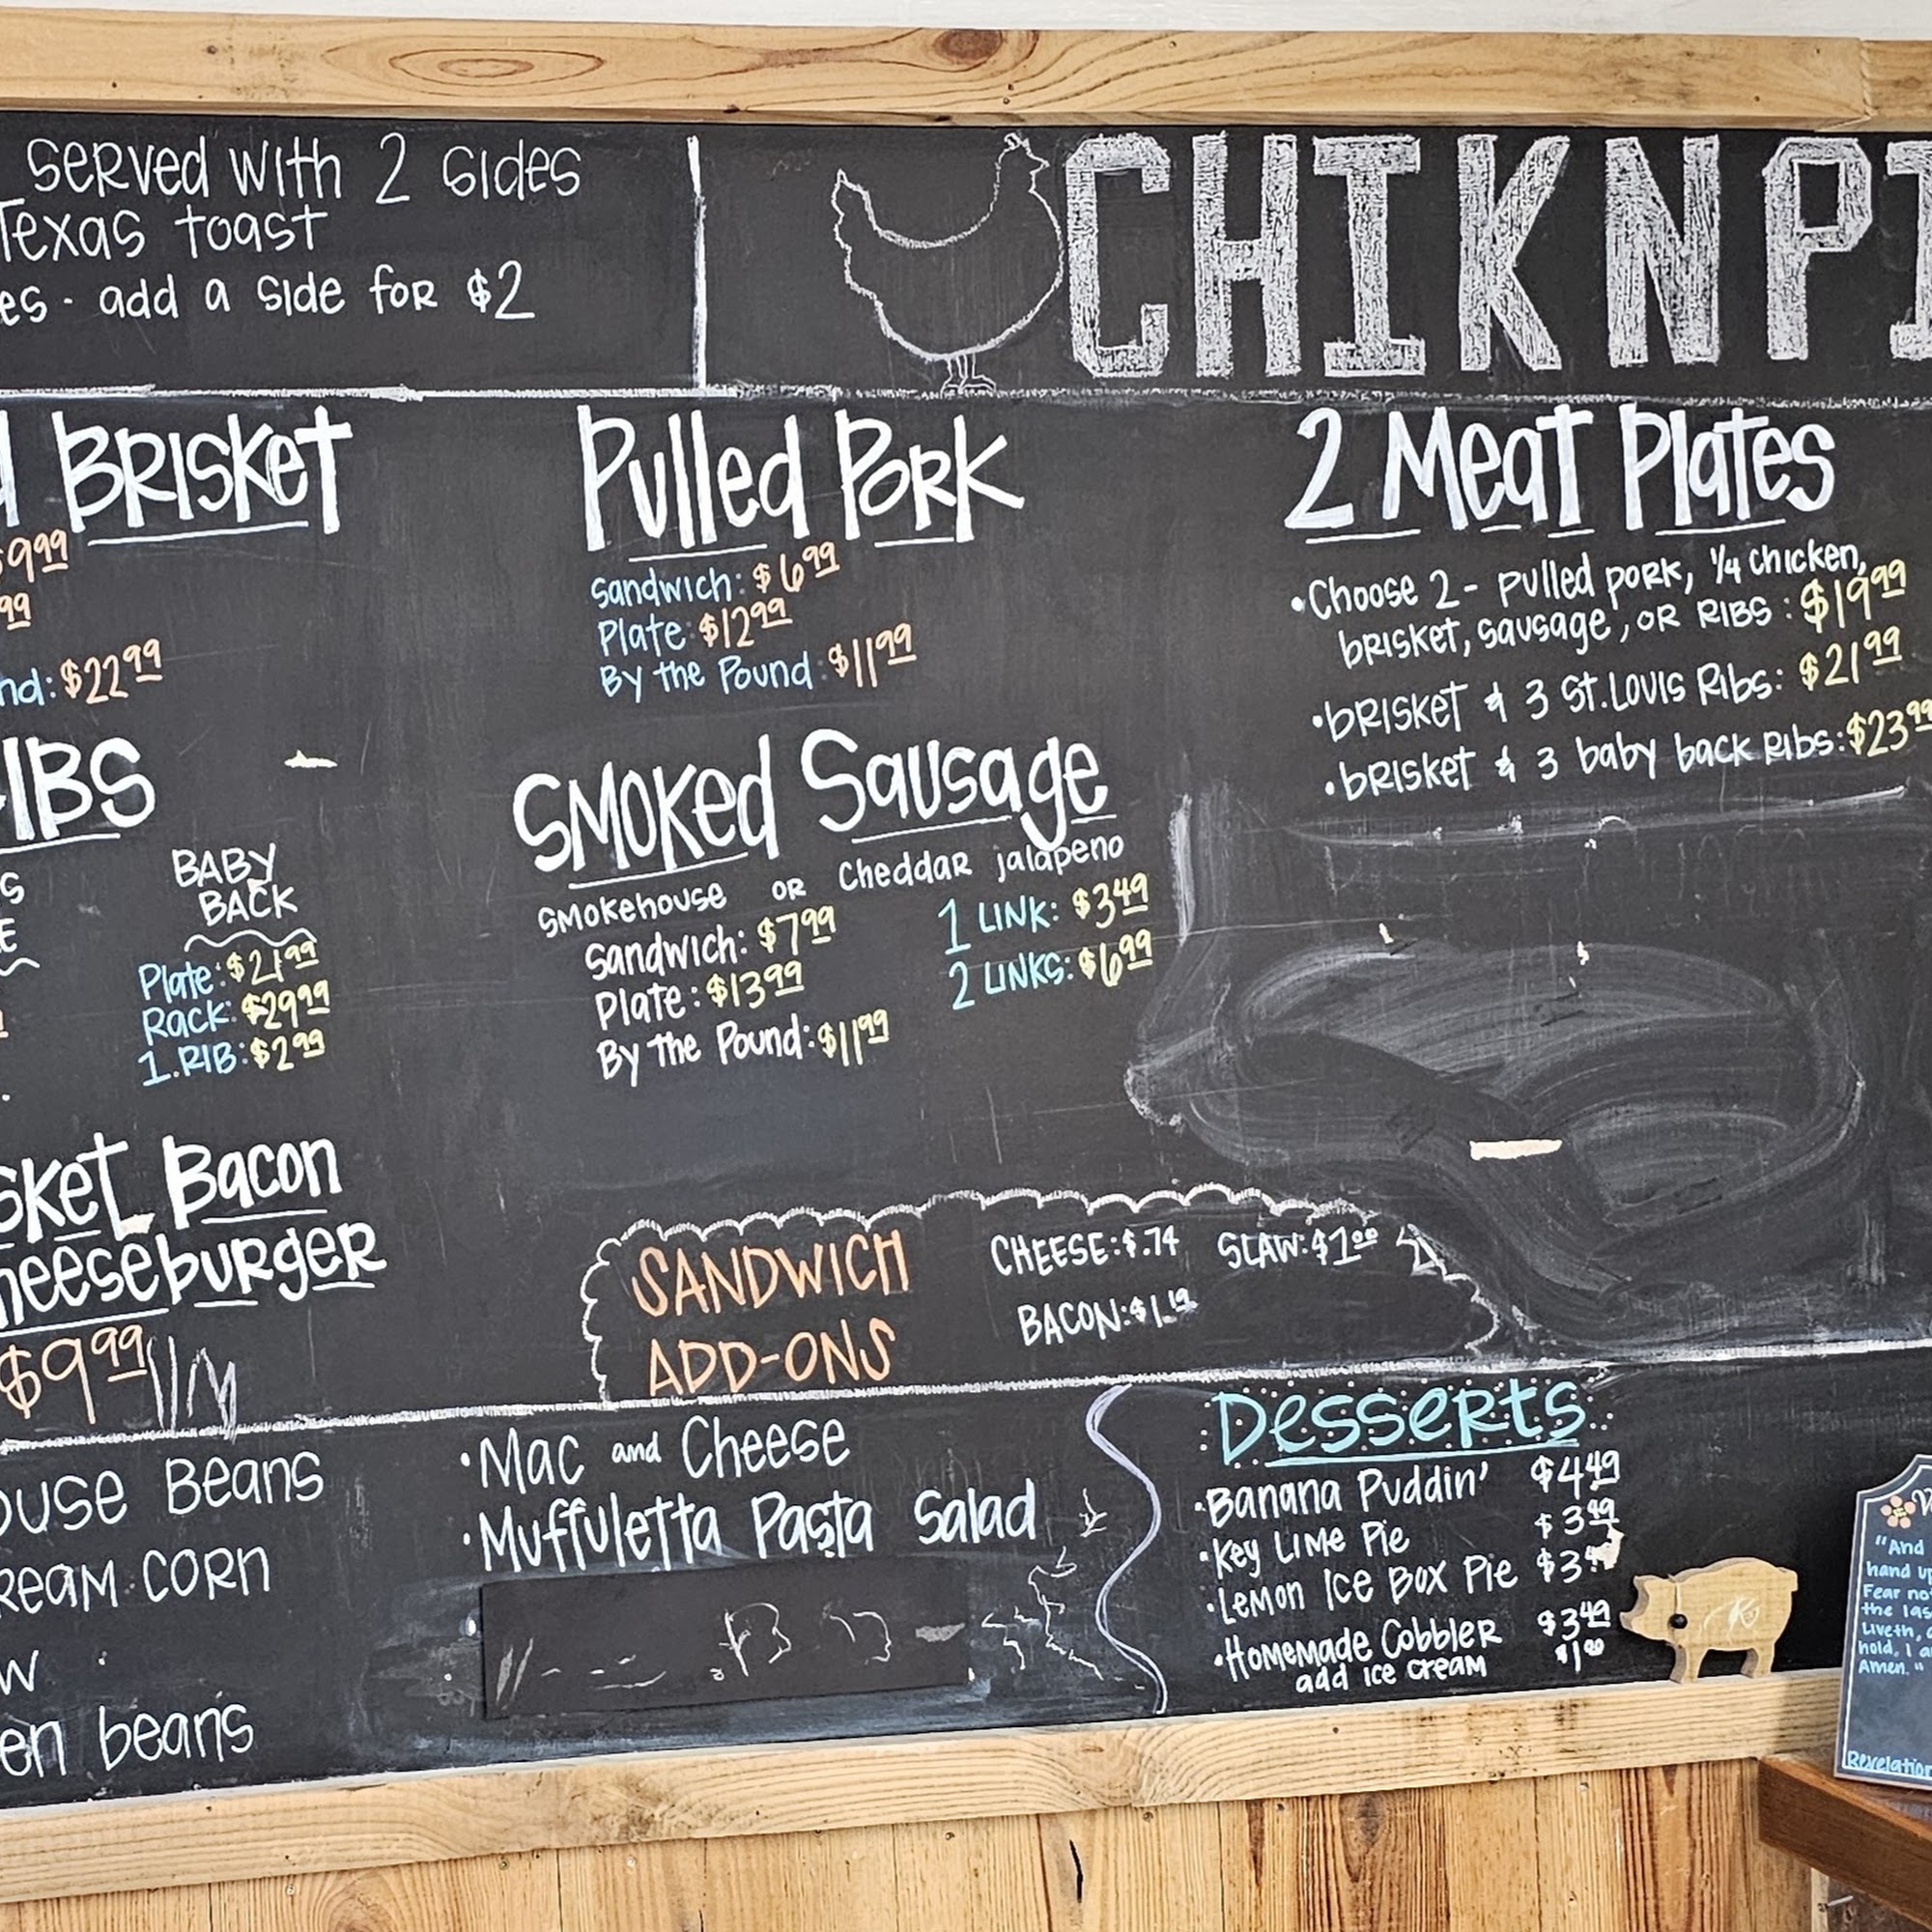 served with 2 sides
Texas toast
add a side for $2
CHIKNPI
BRISKET
$9.99
.99
$22.99
Pulled Pork
Sandwich: $6.99
Plate: $12.99
By the Pound: $11.99
2 Meat Plates
•Choose 2 - pulled pork, 1/4 chicken,
brisket, sausage, or ribs: $19.99
•brisket & 3 St. Louis Ribs: $21.99
•brisket & 3 baby back Ribs: $23.99
BABY
BACK
Plate: $21.99
Rack: $29.99
1 RIB: $2.99
Smoked Sausage
Smokehouse or Cheddar jalapeno
Sandwich: $7.99
Plate: $13.99
By the Pound: $11.99
1 LINK: $3.49
2 LINKS: $6.99
Bacon
$9.99
SANDWICH
ADD-ONS
CHEESE: $.74 SLAW: $1.00
BACON: $1.19
Beans
CORN
beans
•Mac and Cheese
•Muffuletta Pasta Salad
Desserts
•Banana Puddin' $4.49
•Key Lime Pie $3.49
•Lemon Ice Box Pie $3.
•Homemade Cobbler $3.49
add ice cream $1.00
"And
hand
Fear
the
Liveth,
hold, I
Amen."